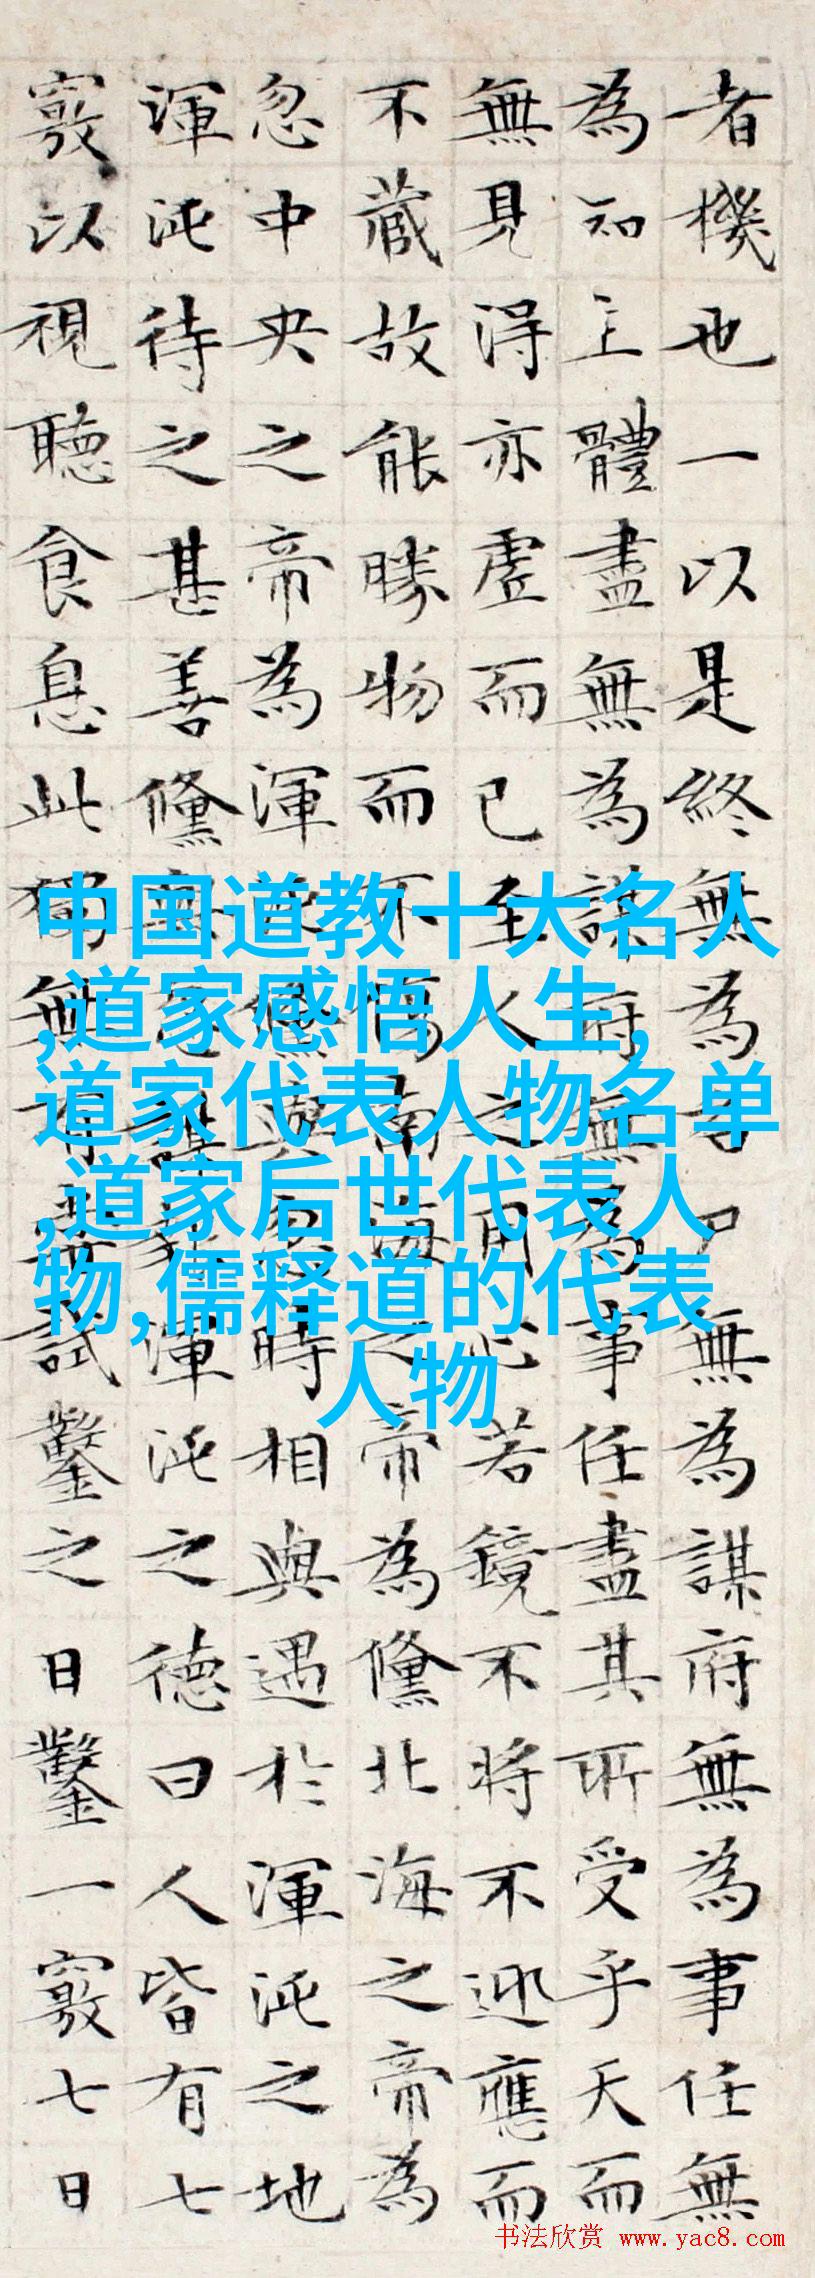 者機也一以是終無為名尸無為謀府無為事任無
為知主體盡無為謀府無為事任盡其所受乎天而
無見得亦虛而已至人之用心若鏡不將不迎應而
不藏故能勝物而不傷南海之帝為儵北海之帝為
忽中央之帝為渾沌儵與忽時相與遇於渾沌之地
渾沌待之甚善儵與忽謀報渾沌之德曰人皆有七
竅以視聽食息此獨無有嘗試鑿之日鑿一竅七日
中国道教十大名人
,道家感悟人生,
道家代表人物名单
,道家后世代表人
物,儒释道的代表
人物
书法欣赏 www.yac8.com